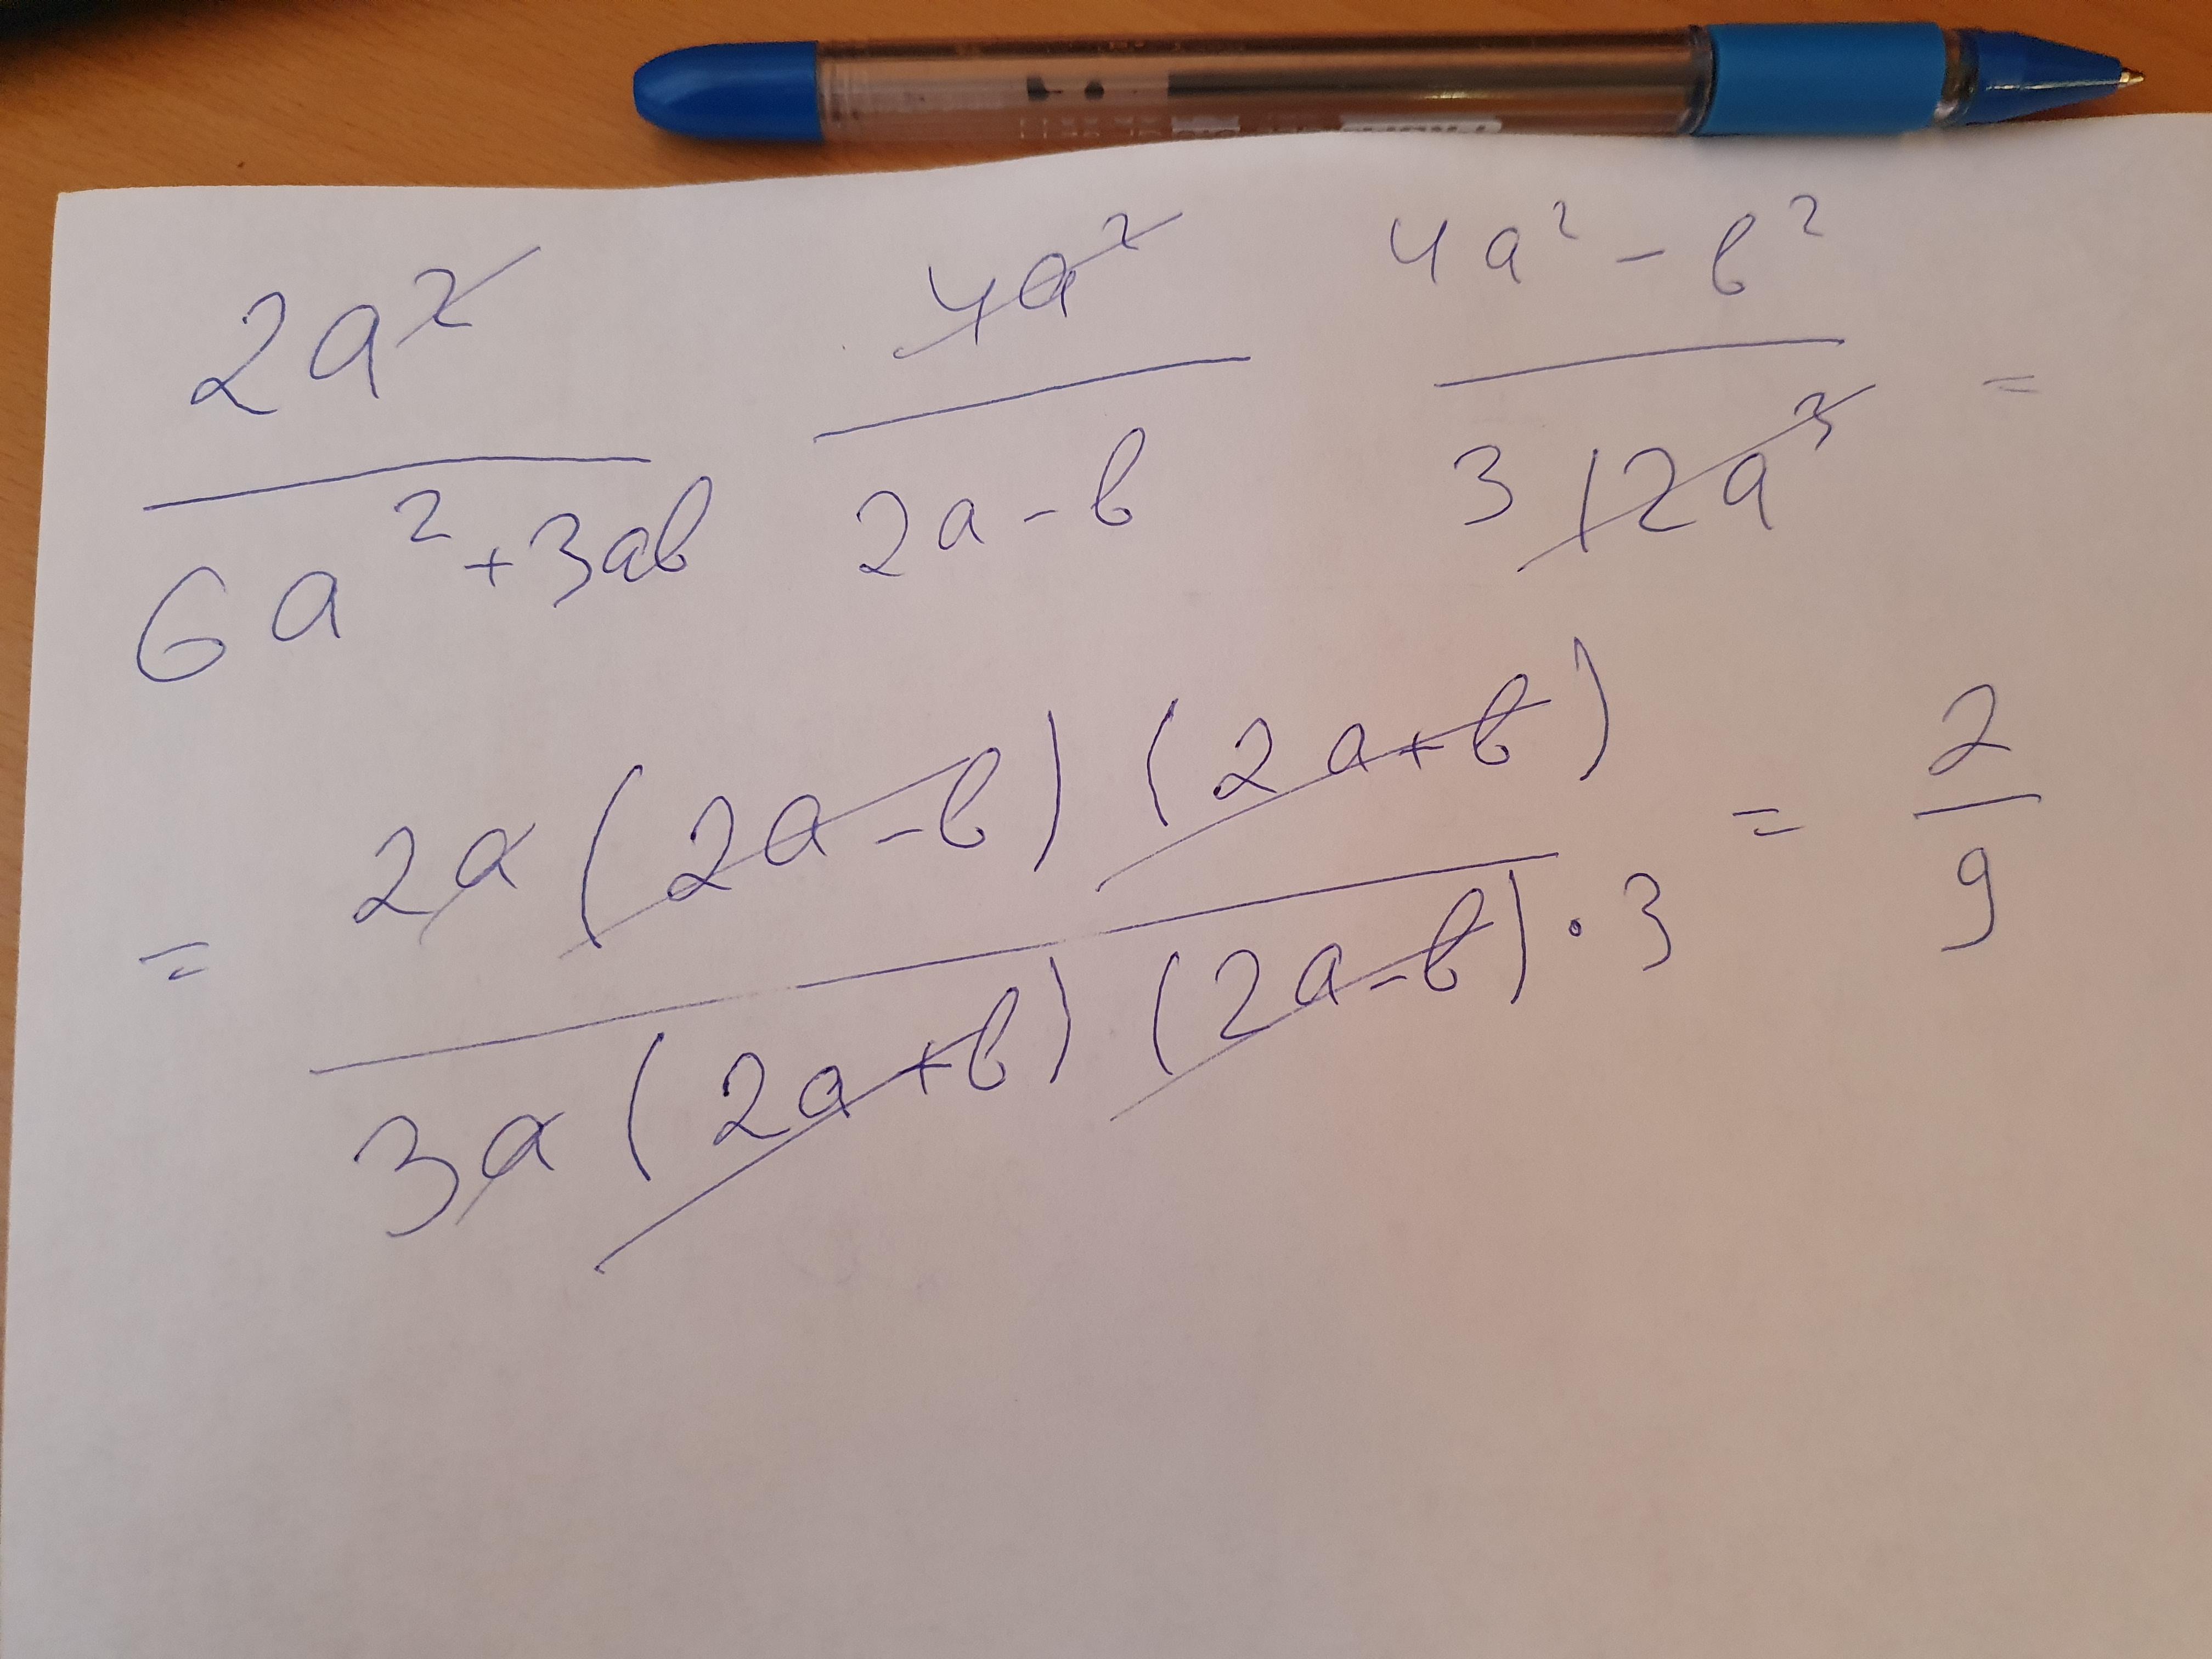 2a² / 6a²+3ab 4a² / 2a-b 4a²-b² / 3 12a³ =
= 2a(2a-b)(2a+b) / 3a(2a+b)(2a-b)·3 = 2/9